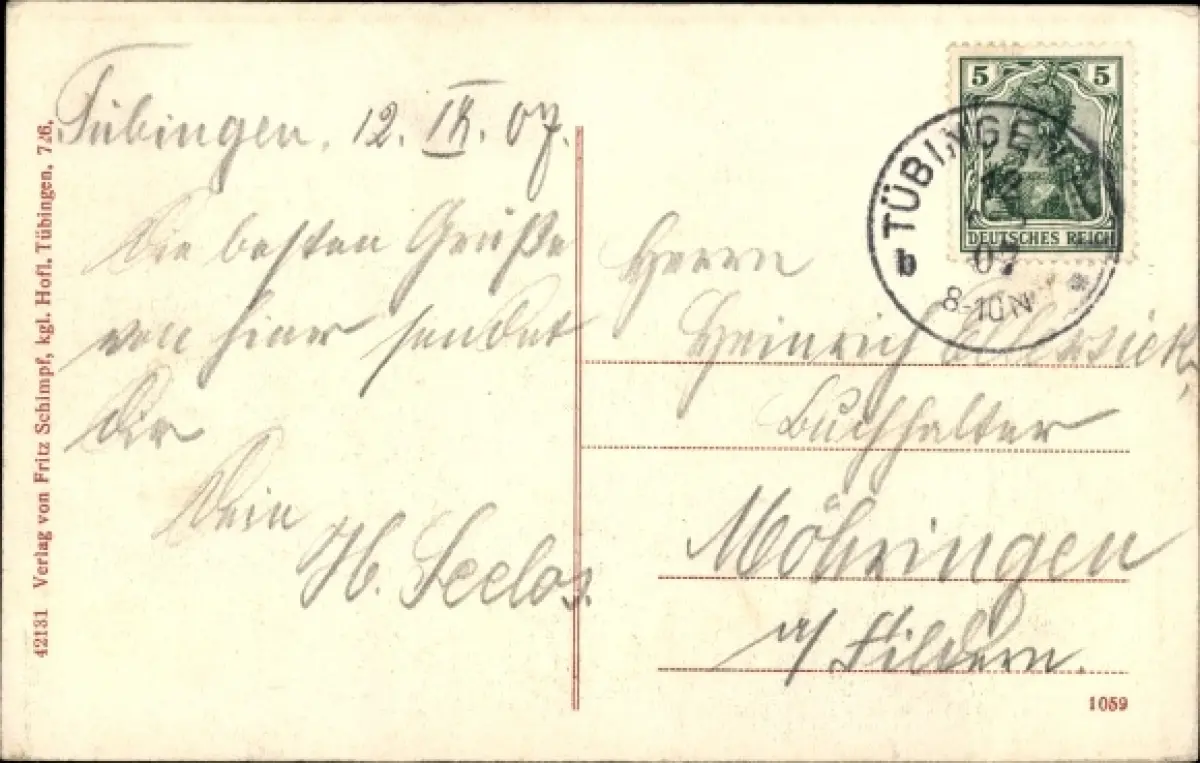 Tübingen, 12. IX. 07.
Die besten Grüße
von hier sendet
Dir
Dein
H. Seelos.
Herrn
Heinrich
Buchhalter
Möhringen
a/ Fildern.
5 5
DEUTSCHES REICH
TÜBINGEN
12
07
8-10N
b *
42131 Verlag von Fritz Schimpf, kgl. Hofl. Tübingen. 7/6.
1059